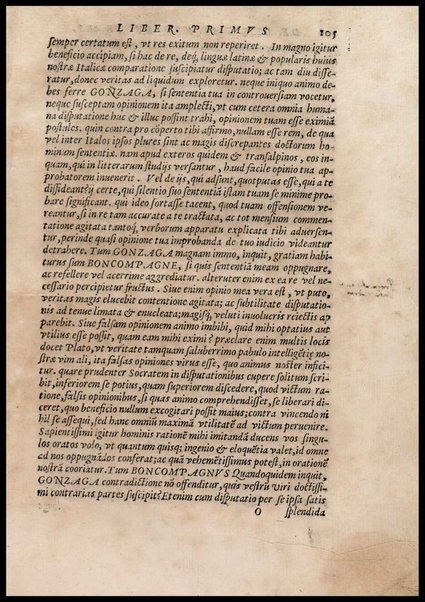 LIBER. PRIMVS 105
semper certatum est, vt res exitum non reperiret. In magno igitur
beneficio accipiam, si hac de re, deq́, linguæ latinæ & popularis huius
nostræ Italicæ comparatione suscipiatur disputatio; ac tam diu disse-
ratur, donec veritas ad liquidum exploretur. neque iniquo animo de-
bes ferre GONZAGA, si sententia tua in controuersiam vocetur,
neque susceptam opinionem ita amplecti, vt cum cetera omnia huma-
na disputatione huc & illuc possint trahi, opinionem tuam esse eximiã
postules. quin contra pro cõperto tibi affirmo, nullam esse rem, de qua
vel inter Italos ipsos plures sint ac magis discrepantes doctorum ho-
minum sententiæ. nam apud exteros quidem & transalpinos, eos in-
quam, qui in litterarum studijs versantur, haud facile opinio tua ap-
probatorem inuenerit. Vel de ijs, qui adsint, quotputas esse, qui a te
dissideant? ij certe, qui silentio suo sententiã istam tuam se minime pro-
bare significant. qui ideo fortasse tacent, quod tuam offensionem ve-
reantur, si in re tam accurate a te tractata, ac tot mensium commen-
tatione agitata tantoq́, verborum apparatu explicata tibi aduersen-
tur, perinde quasi opinione tua improbanda de tuo iudicio videantur
detrahere. Tum GONZAGA magnam immo, inquit, gratiam habi-
turus sum BONCOMPAGNE, si quis sententiã meam oppugnare,
ac refellere vel acerrime aggrediatur. Alteruter enim ex ea re vel ne-
cessario percipietur fructus. Siue enim opinio mea vera est, vt puto,
veritas magis elucebit contentione agitata; ac subtilitate disputatio-
nis ad tenue limata & enucleata; magisq́, veluti inuolucris reiectis ap
parebit. Siue falsam opinionem animo imbibi, quid mihi optatius aut
vtilius esse possit, quam eam mihi eximi? præclare enim multis locis
docet Plato, vt veritate tamquam saluberrimo pabulo intelligẽtiȩ no-
stræ vim ali, ita falsas opiniones virus esse, quo animus noster infici-
tur. quare prudenter Socratem in disputationibus cupere solitum scri-
bit, inferiorem se potius, quam superiorem discedere, quod victum ra-
tione, falsis opinionibus, si quas animo comprehendisset, se liberari di-
ceret, quo beneficio nullum excogitari possit maius; contra vincendo ni
hil se assequi, sed hanc omniũ maximã vtilitatẽ ad victum peruenire.
Sapientissimi igitur hominis rationẽ mihi imitandã ducens vos singu-
los oratos volo, vt quantum quisq; ingenio & eloquẽtia valet, id omne
ad nos oppugnãdos conferat; ac quã vehemẽtissimus potest, in orationẽ
nostrã cooriatur. Tum BONCOMPAGNVS Quandoquidem inquit,
GONZAGA contradictione nõ offenditur, quis vestrũ viri doctissi-
mi contrarias partes suscipit? Etenim cum disputatio per se ipsa satis
O splendida